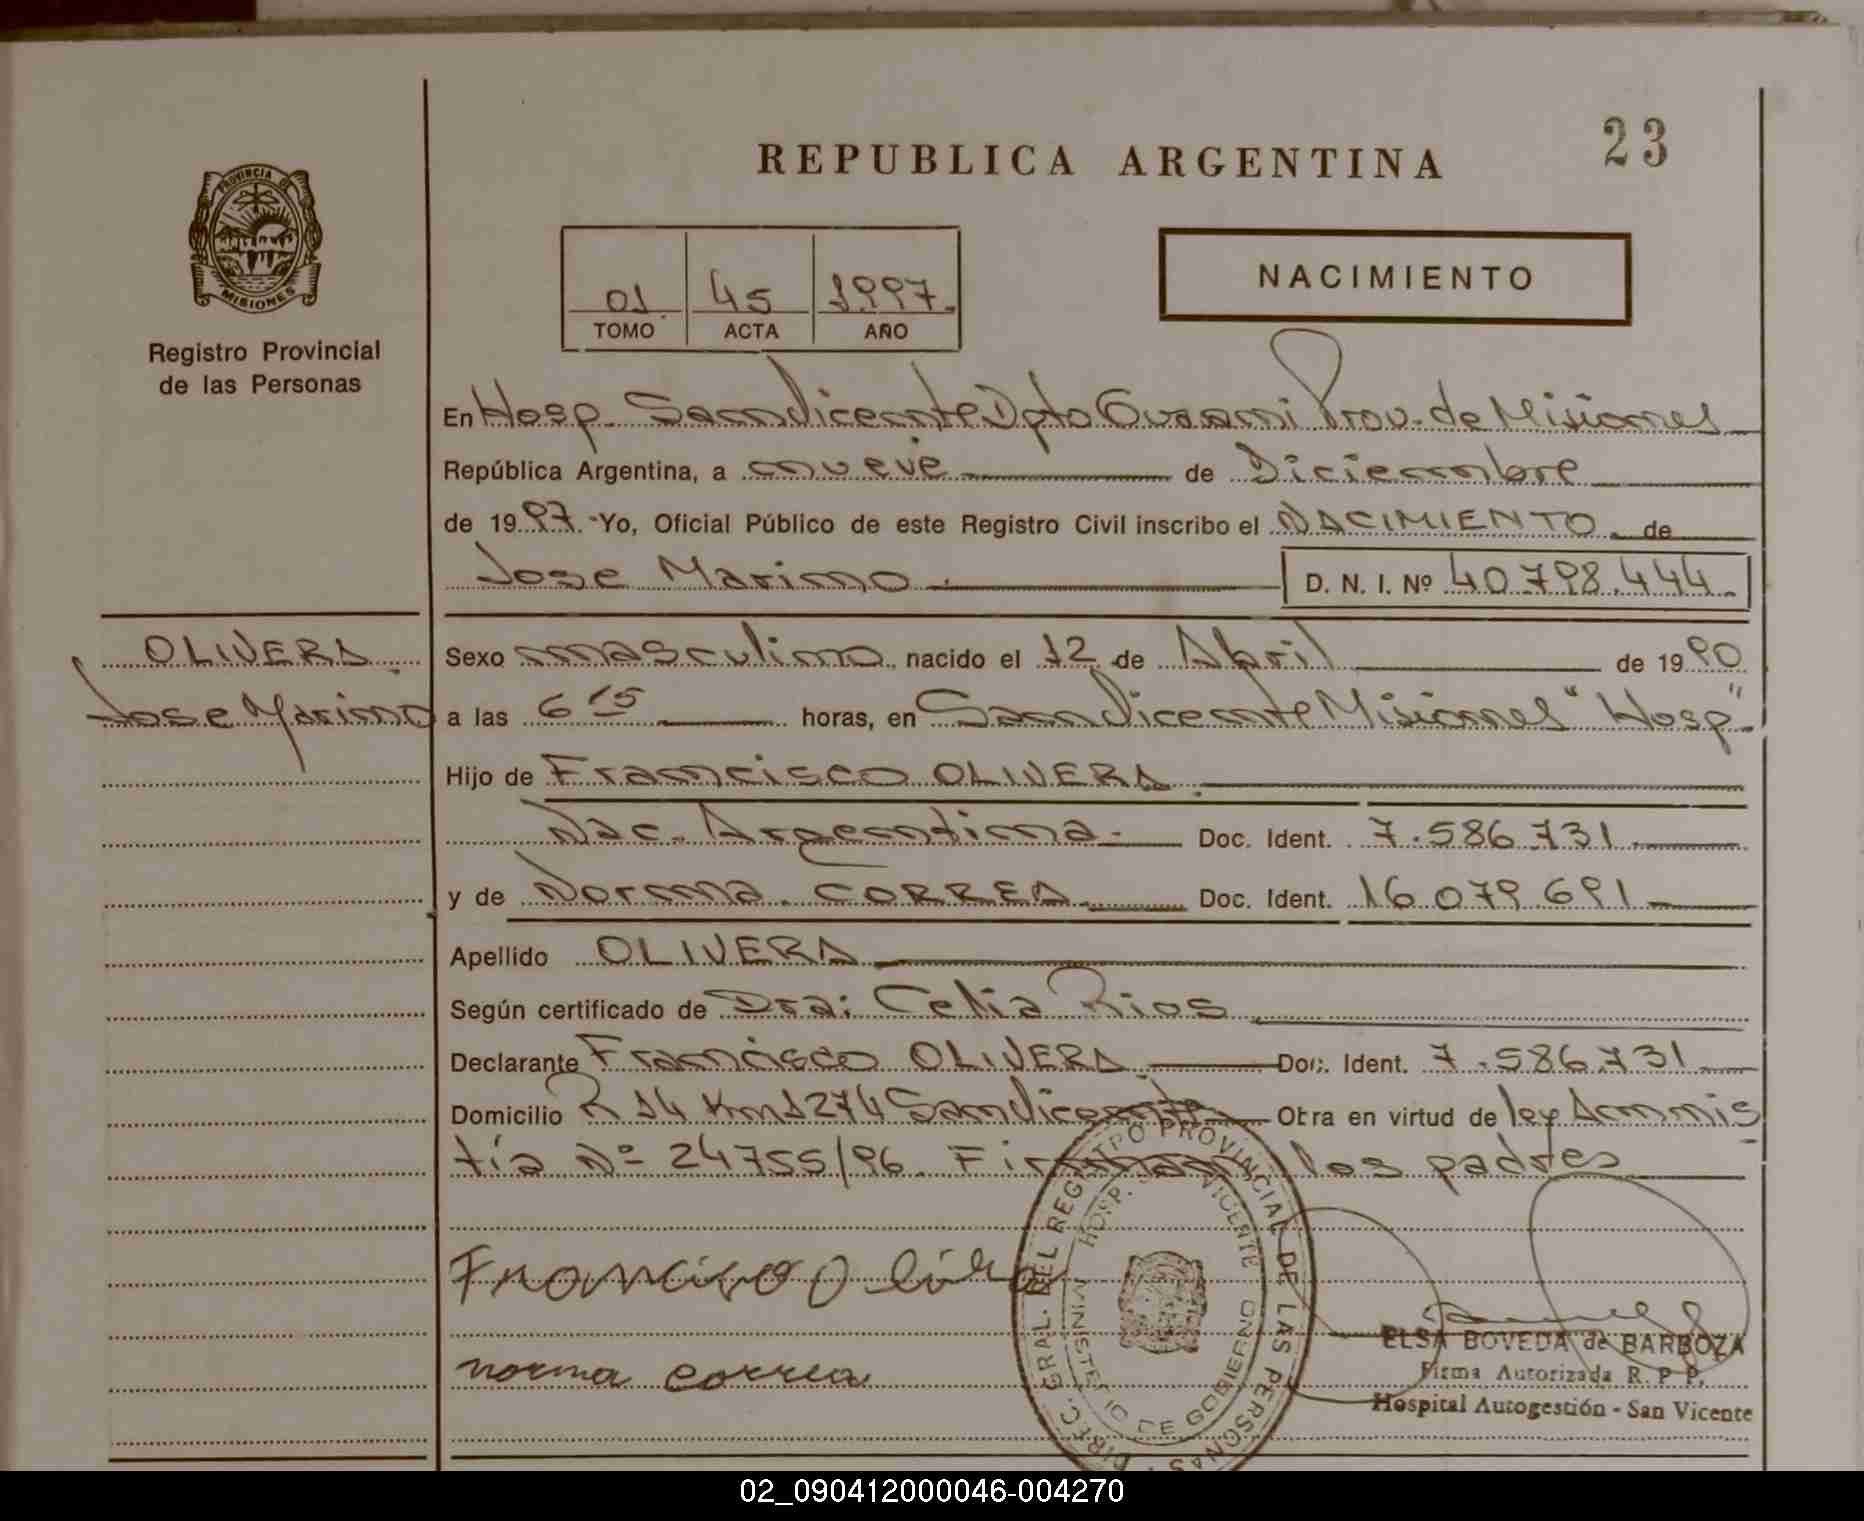 23
REPUBLICA ARGENTINA
PROVINCIA DE
MISIONES
Registro Provincial
de las Personas
01 45 1997.
TOMO ACTA AÑO
NACIMIENTO
En Hosp. San Vicente Dpto Guarani Prov. de Misiones
República Argentina, a nueve de Diciembre
de 1997. Yo, Oficial Público de este Registro Civil inscribo el NACIMIENTO de
Jose Marino D. N. I. Nº 40.798.444.
OLIVERA
Jose Marino
Sexo masculino nacido el 12 de Abril de 1990
a las 6 15 horas, en San Vicente Misiones "Hosp"
Hijo de Francisco OLIVERA
Nac. Argentina. Doc. Ident. 7.586.731
y de Norma CORREA Doc. Ident. 16.079.691
Apellido OLIVERA
Según certificado de Dra: Celia Rios
Declarante Francisco OLIVERA Doc. Ident. 7.586.731
Domicilio R 14 Km 1274 San Vicente Obra en virtud de ley Amnis
tía Nº 24755/96. Firman los padres
Francisco
norma correa
DIREC. GRAL. DEL REGISTRO PROVINCIAL DE LAS PERSONAS
HOSP. SAN VICENTE
MINISTERIO DE GOBIERNO
ELSA BOVEDA de BARBOZA
Firma Autorizada R. P. P.
Hospital Autogestión - San Vicente
02_090412000046-004270